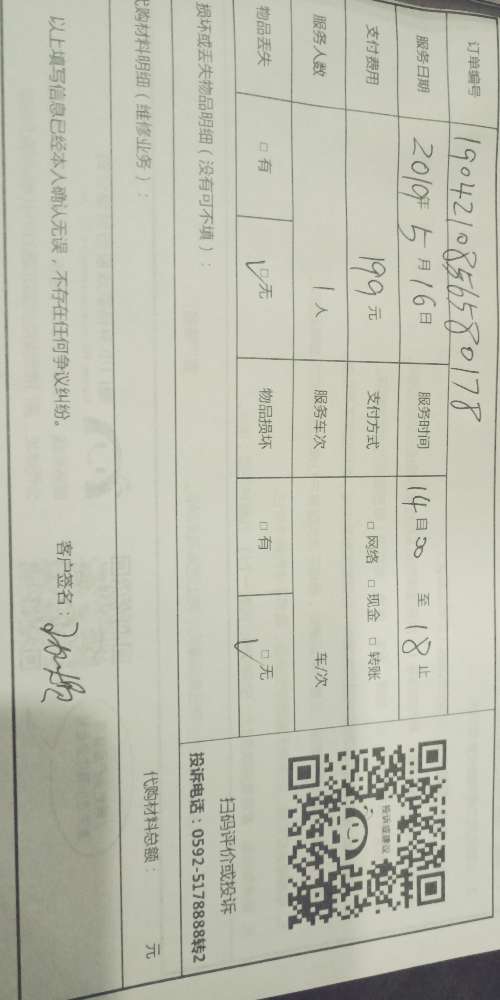 订单编号 1904210856580178
服务日期 2019年 5月16日 服务时间 14:00 至 18 止
支付费用 199元 支付方式 □网络 □现金 □转账
服务人数 1人 服务车次 车/次
物品丢失 □有 ☑无 物品损坏 □有 ☑无
损坏或丢失物品明细（没有可不填）：
投诉或建议
扫码评价或投诉
投诉电话：0592-5178888转2
代购材料明细（维修业务）：
代购材料总额： 元
以上填写信息已经本人确认无误，不存在任何争议纠纷。 客户签名：